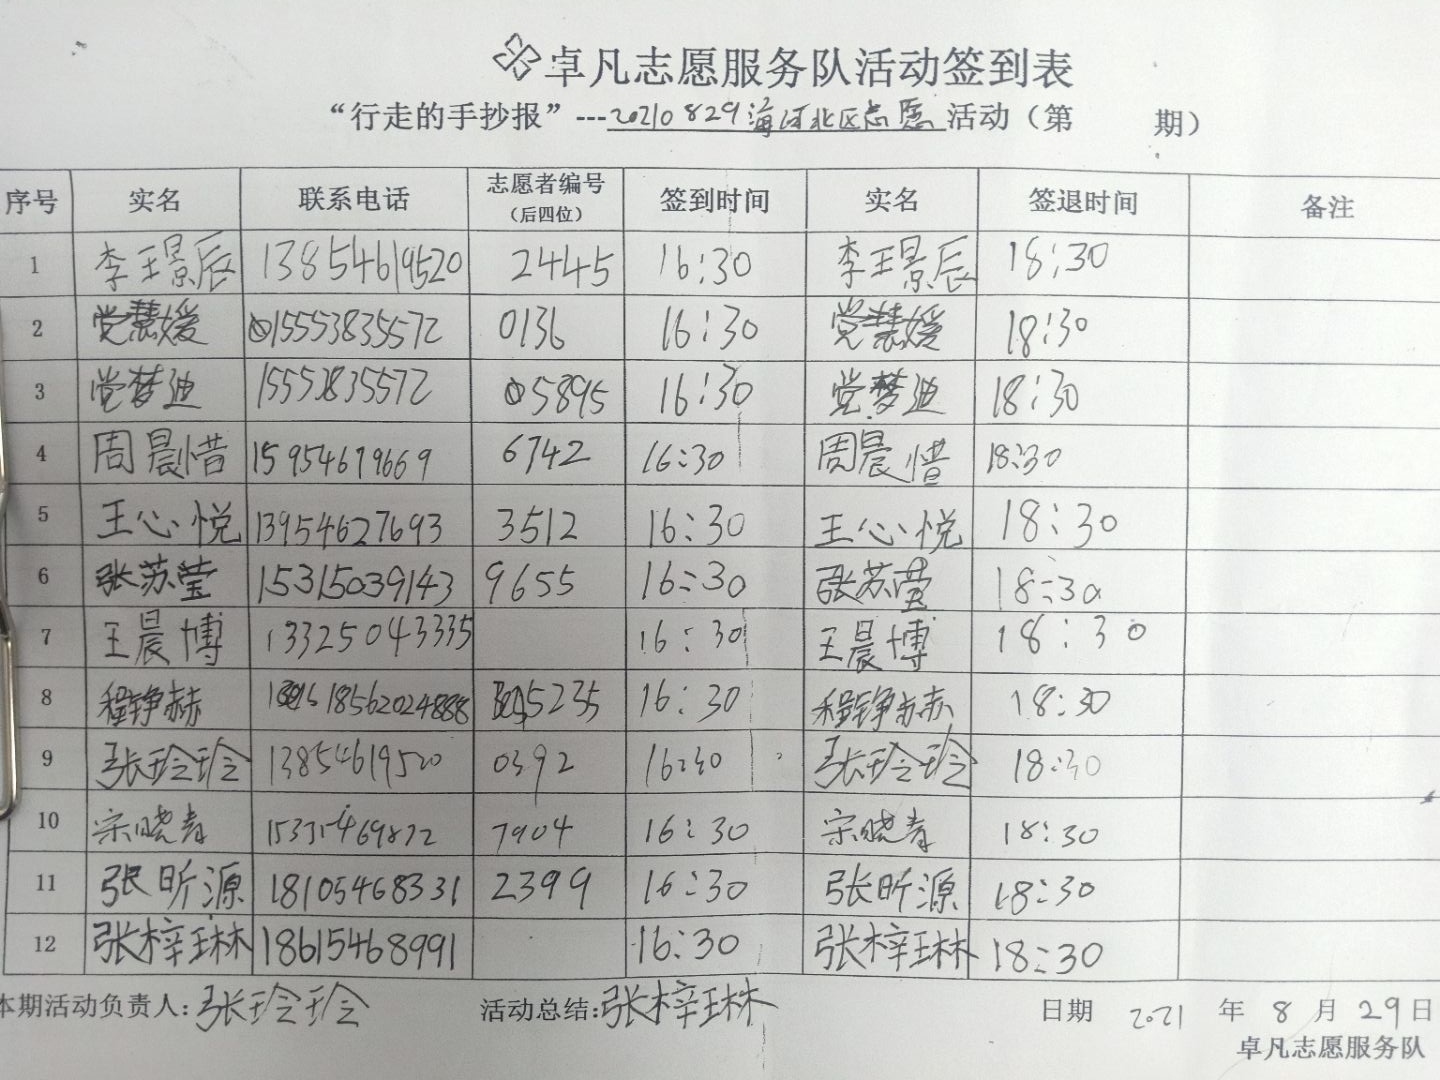 卓凡志愿服务队活动签到表
“行走的手抄报”---20210829海河北区志愿活动（第 期）
序号 实名 联系电话 志愿者编号（后四位） 签到时间 实名 签退时间 备注
1 李王景辰 13854619520 2445 16:30 李王景辰 18:30
2 党慧媛 15553835572 0136 16:30 党慧媛 18:30
3 党梦迪 15553835572 5895 16:30 党梦迪 18:30
4 周晨惜 15954679669 6742 16:30 周晨惜 18:30
5 王心悦 13954627693 3512 16:30 王心悦 18:30
6 张苏莹 15315039143 9655 16:30 张苏莹 18:30
7 王晨博 13325043335 16:30 王晨博 18:30
8 程铮赫 18562024888 5235 16:30 程铮赫 18:30
9 张玲玲 13854619520 0392 16:30 张玲玲 18:30
10 宋晓青 7904 16:30 宋晓青 18:30
11 张昕源 18105468331 2399 16:30 张昕源 18:30
12 张梓琳 18615468991 16:30 张梓琳 18:30
本期活动负责人:张玲玲 活动总结:张梓琳 日期 2021 年 8 月 29日
卓凡志愿服务队